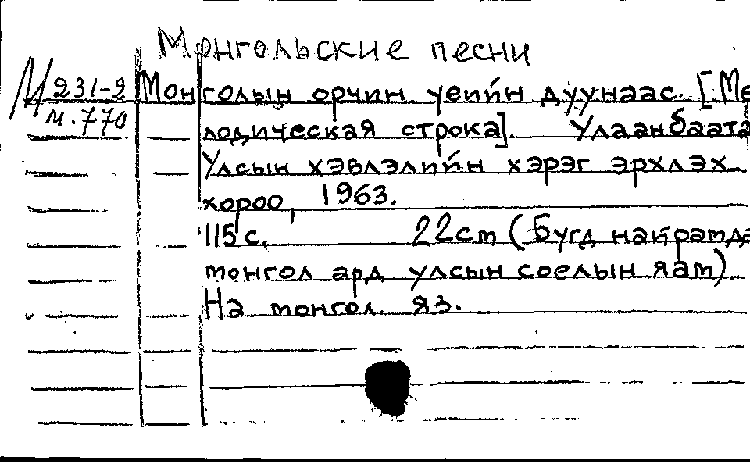 Монгольские песни
М 231-2 Монголын орчин уеийн дуунаас. [Ме
м. 770 лодическая строка]. Улаанбаата
Улсын хэвлэлийн хэрэг эрхлэх
хороо, 1963.
115 с. 22 cm (Бугд найрамда
монгол ард улсын соелын яам)
На монгол. яз.